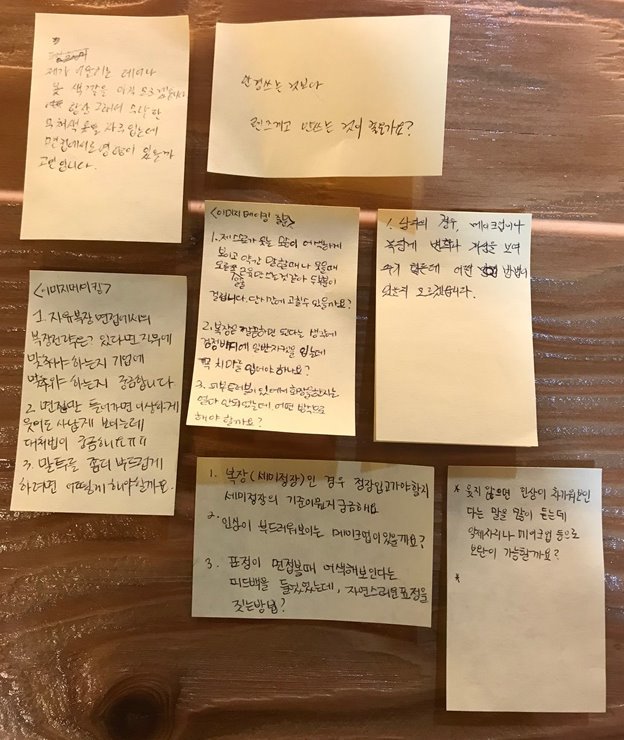 제가 어울리는 헤어나
옷 색깔을 아직 모르겠습니다
항간 그래서 무난한
무채색 옷을 자주 입는데
면접에서도 영향이 있을까
고민입니다.
안경쓰는 것보다
렌즈끼고 안쓰는 것이 좋은가요?
<이미지 메이킹 질문>
1. 제 스스로가 웃는 모습이 어색하게
보이고 약간 말할때나 웃을때
오른쪽 근육만 쓰는것 같아 두볼이
걸립니다. 단시간에 고칠수 있을까요?
2. 복장은 깔끔하면 된다는 생각에
검정바지에 일반자켓을 입는데
꼭 치마를 입어야 하나요?
3. 피부트러블이 있어서 화장을 한지는
얼마 안되었는데 어떤 방식으로
해야 할까요?
1. 남자의 경우, 메이크업이나
복장에 변화나 개성을 보여
주기 힘든데 어떤 방법이
있는지 모르겠습니다.
<이미지메이킹>
1. 자유복장 면접에서의
복장전략은? 있다면 직무에
맞춰야 하는지 기업에
맞춰야 하는지 궁금합니다
2. 면접만 들어가면 이상하게
웃어도 사납게 보이는데
대처법이 궁금해요ㅠㅠ
3. 말투를 좀더 부드럽게
하려면 어떻게 해야할까요.
1. 복장(세미정장)인 경우 정장입고가야할지
세미정장의 기준이 뭔지 궁금해요
2. 인상이 부드러워보이는 메이크업이 있을까요?
3. 표정이 면접볼때 어색해보인다는
피드백을 들었었는데, 자연스러운표정을
짓는방법?
* 웃지 않으면 인상이 차가워보인
다는 말을 많이 듣는데
악세사리나 메이크업 등으로
보완이 가능할까요?
*